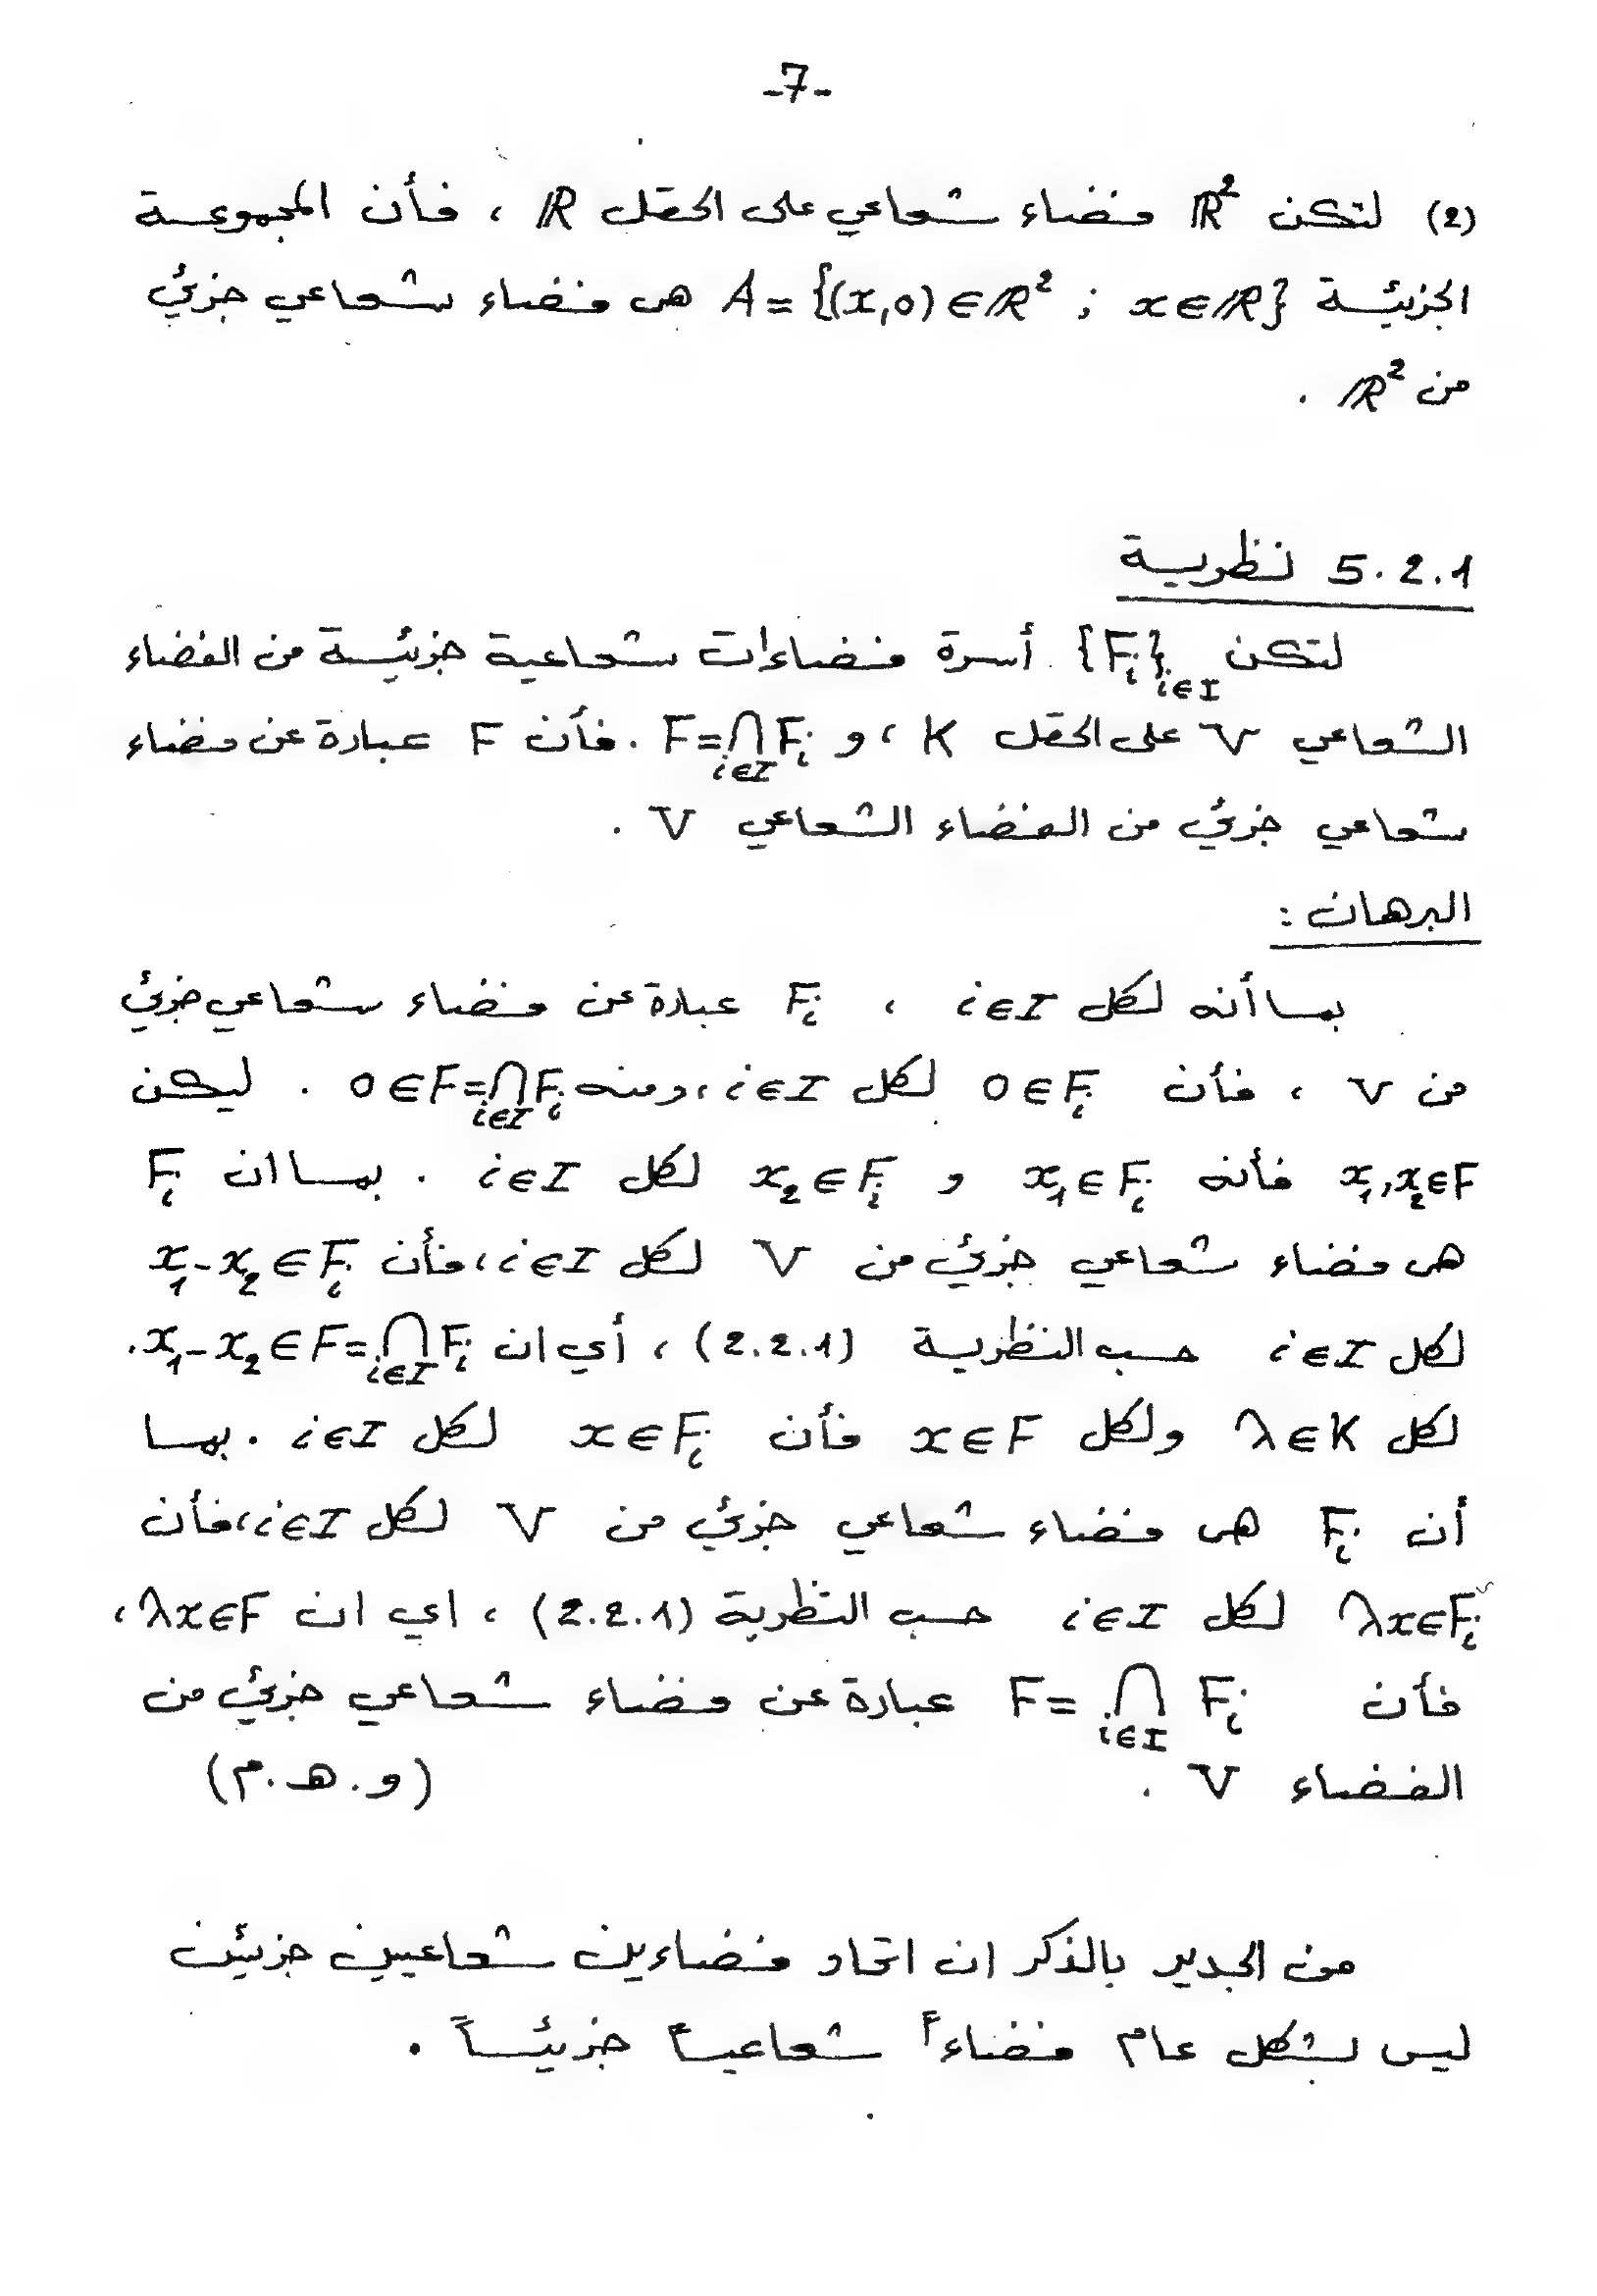 -7-
(2) لتكن ℝ² فضاء شعاعي على الحقل ℝ ، فأن المجموعة
الجزئية A = {(x,0) ∈ ℝ² ; x ∈ ℝ} هي فضاء شعاعي جزئي
من ℝ² .
5.2.1 نظرية
لتكن {Fᵢ}ᵢ∈I أسرة فضاءات شعاعية جزئية من الفضاء
الشعاعي V على الحقل K ، و F = ⋂ᵢ∈I Fᵢ . فأن F عبارة عن فضاء
شعاعي جزئي من الفضاء الشعاعي V .
البرهان :
بما أنه لكل i ∈ I ، Fᵢ عبارة عن فضاء شعاعي جزئي
من V ، فأن 0 ∈ Fᵢ لكل i ∈ I ، ومنه 0 ∈ F = ⋂ᵢ∈I Fᵢ . ليكن
x₁, x₂ ∈ F فأنه x₁ ∈ Fᵢ و x₂ ∈ Fᵢ لكل i ∈ I . بما ان Fᵢ
هي فضاء شعاعي جزئي من V لكل i ∈ I ، فأن x₁ - x₂ ∈ Fᵢ
لكل i ∈ I حسب النظرية (2.2.1) ، أي ان x₁ - x₂ ∈ F = ⋂ᵢ∈I Fᵢ .
لكل λ ∈ K ولكل x ∈ F فأن x ∈ Fᵢ لكل i ∈ I . بما
أن Fᵢ هي فضاء شعاعي جزئي من V لكل i ∈ I ، فأن
λx ∈ Fᵢ لكل i ∈ I حسب النظرية (2.2.1) ، اي ان λx ∈ F ،
فأن F = ⋂ᵢ∈I Fᵢ عبارة عن فضاء شعاعي جزئي من
الفضاء V . (و . هـ . م)
من الجدير بالذكر ان اتحاد فضاءين شعاعيين جزئين
ليس بشكل عام فضاءاً شعاعياً جزئياً .